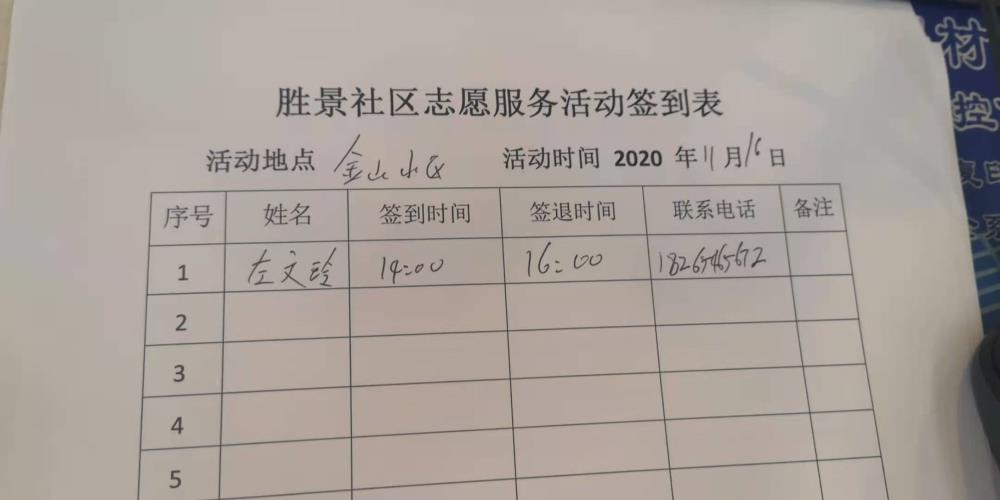 材
控
胜景社区志愿服务活动签到表
活动地点 金山小区 活动时间 2020 年 11 月 16 日
序号 姓名 签到时间 签退时间 联系电话 备注
1 左文玲 14:00 16:00 18265465672
2
3
4
5